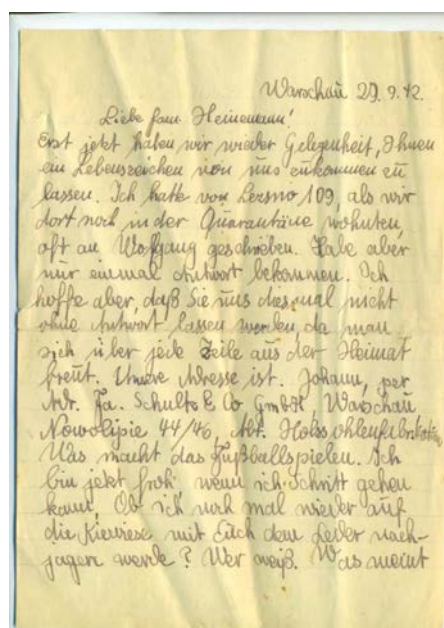 Warschau 29.9.42.
Liebe Fam. Heinemann!
Erst jetzt haben wir wieder Gelegenheit, Ihnen
ein Lebenszeichen von uns zukommen zu
lassen. Ich hatte von Leszno 109, als wir
dort noch in der Quarantäne wohnten,
oft an Wolfgang geschrieben. Habe aber
nur einmal Antwort bekommen. Ich
hoffe aber, daß Sie uns diesmal nicht
ohne Antwort lassen werden, da man
sich über jede Zeile aus der Heimat
freut. Unsere Adresse ist. Johann, per
Adr. Fa. Schultz & Co GmbH Warschau
Nowolipie 44/46, Abt.
Was macht das Fußballspielen. Ich
bin jetzt froh wenn ich Schritt gehen
kann, Ob ich noch mal wieder auf
die mit Euch dem Leder nach-
jagen werde? Wer weiß. Was meint